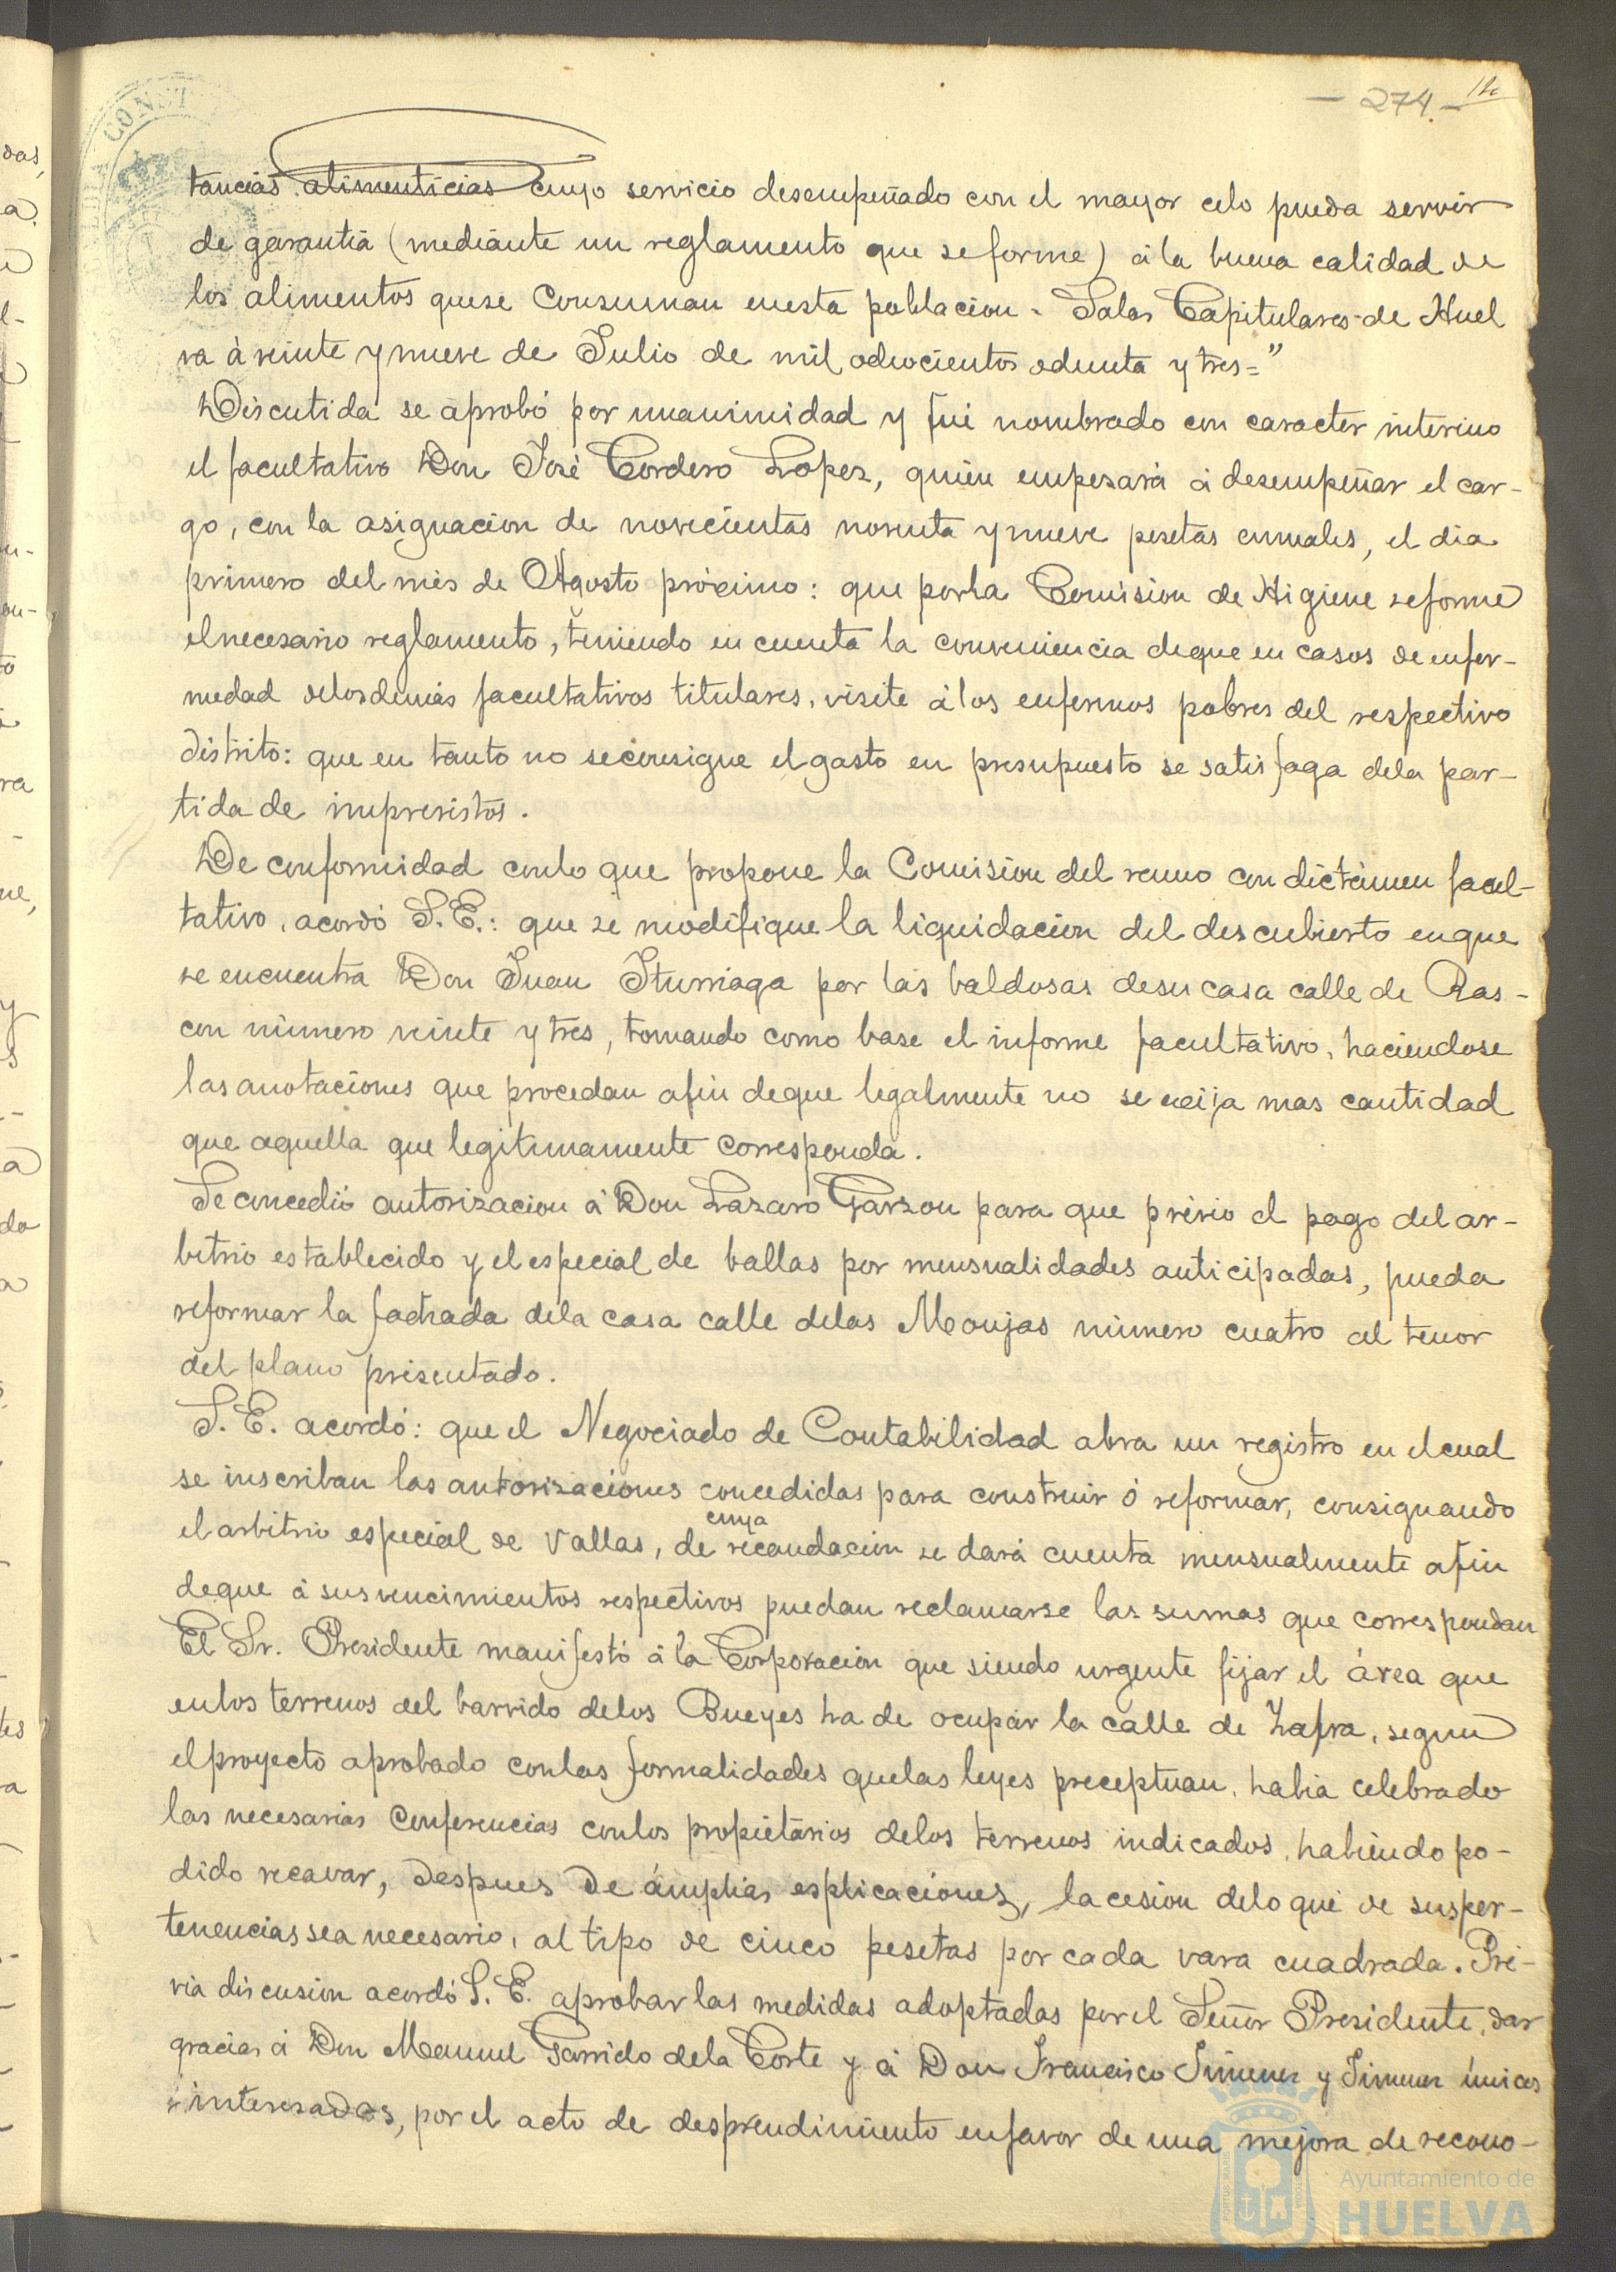 - 274 -
tancias alimenticias cuyo servicio desempeñado con el mayor celo pueda servir
de garantia (mediante un reglamento que se forme) á la buena calidad de
los alimentos que se consuman en esta poblacion - Salas Capitulares de Huel
va á veinte y nueve de Julio de mil ochocientos ochenta y tres="
Discutida se aprobó por unanimidad y fué nombrado con caracter interino
el facultativo Don José Cordero Lopez, quien empezará á desempeñar el car-
go, con la asignacion de novecientas noventa y nueve pesetas anuales, el dia
primero del mes de Agosto próximo: que por la Comision de Higiene se forme
el necesario reglamento, teniendo en cuenta la conveniencia de que en casos de enfer-
medad de los demás facultativos titulares, visite á los enfermos pobres del respectivo
distrito: que en tanto no se consigne el gasto en presupuesto se satisfaga de la par-
tida de imprevistos.
De conformidad con lo que propone la Comision del ramo con dictámen facul-
tativo, acordó S. E.: que se modifique la liquidacion del descubierto en que
se encuentra Don Juan Iturriaga por las baldosas de su casa calle de Ras-
con número veinte y tres, tomando como base el informe facultativo, haciendose
las anotaciones que procedan afin de que legalmente no se exija mas cantidad
que aquella que legitimamente corresponda.
Se concedió autorizacion á Don Lazaro Garzon para que prévio el pago del ar-
bitrio establecido y el especial de ballas por mensualidades anticipadas, pueda
reformar la fachada de la casa calle de las Monjas número cuatro al tenor
del plano presentado.
S. E. acordó: que el Negociado de Contabilidad abra un registro en el cual
se inscriban las autorizaciones concedidas para construir ó reformar, consignando
el arbitrio especial de Vallas, de cuya recaudacion se dará cuenta mensualmente afin
de que á sus vencimientos respectivos puedan reclamarse las sumas que correspondan
El Sr. Presidente manifestó á la Corporacion que siendo urgente fijar el área que
en los terrenos del barrido de los Bueyes ha de ocupar la calle de Zafra, segun
el proyecto aprobado con las formalidades que las leyes preceptuan, habia celebrado
las necesarias conferencias con los propietarios de los terrenos indicados, habiendo po-
dido recavar, despues de ámplias esplicaciones, la cesion de lo que de sus per-
tenencias sea necesario, al tipo de cinco pesetas por cada vara cuadrada. Pré-
via discusion acordó S. E. aprobar las medidas adoptadas por el Señor Presidente, dar
gracias á Don Manuel Garrido de la Corte y á Don Francisco Jimenez y Jimenez únicos
interesados, por el acto de desprendimiento en favor de una mejora de recono-
Ayuntamiento de
HUELVA